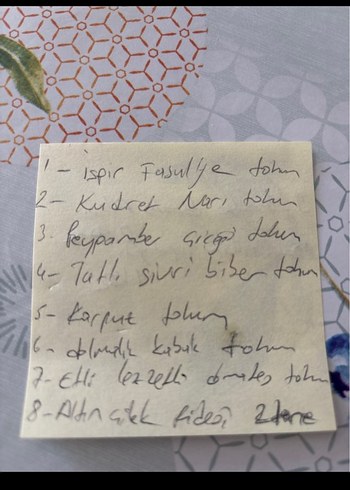 1- ispir Fasulye tohum
2- Kudret Narı tohum
3- Peygamber çiçeği tohum
4- Tatlı sivri biber tohum
5- Karpuz tohum
6- dolmalık kabak tohum
7- Etli lezzetli domates tohum
8- Altın çilek fidesi 2 tane